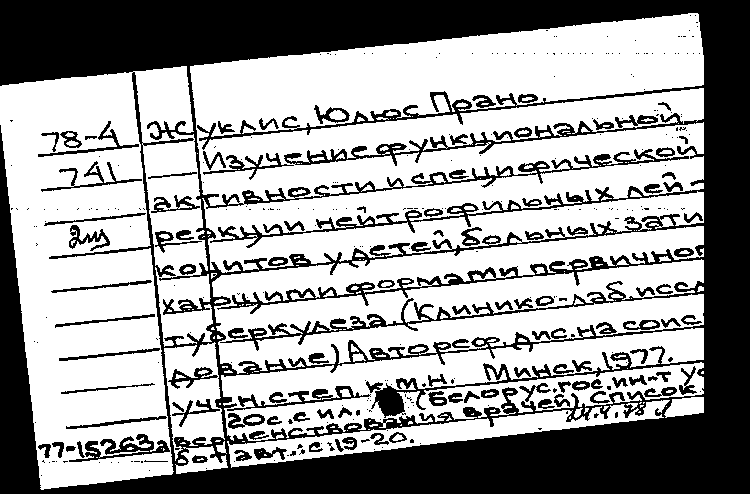 78-4 Жуклис, Юлюс Прано.
741 Изучение функциональной
активности и специфической
2 реакции нейтрофильных лей-
коцитов у детей, больных зати
хающими формами первичног
туберкулеза. (Клинико-лаб. иссл
дование) Автореф. дис. на соис.
учен. степ. к.м.н. Минск, 1977.
20 с. с ил. (Белорус. гос. ин-т ус
77-15263а вершенствования врачей). Список
бот авт.: с. 19-20. 24.4.78